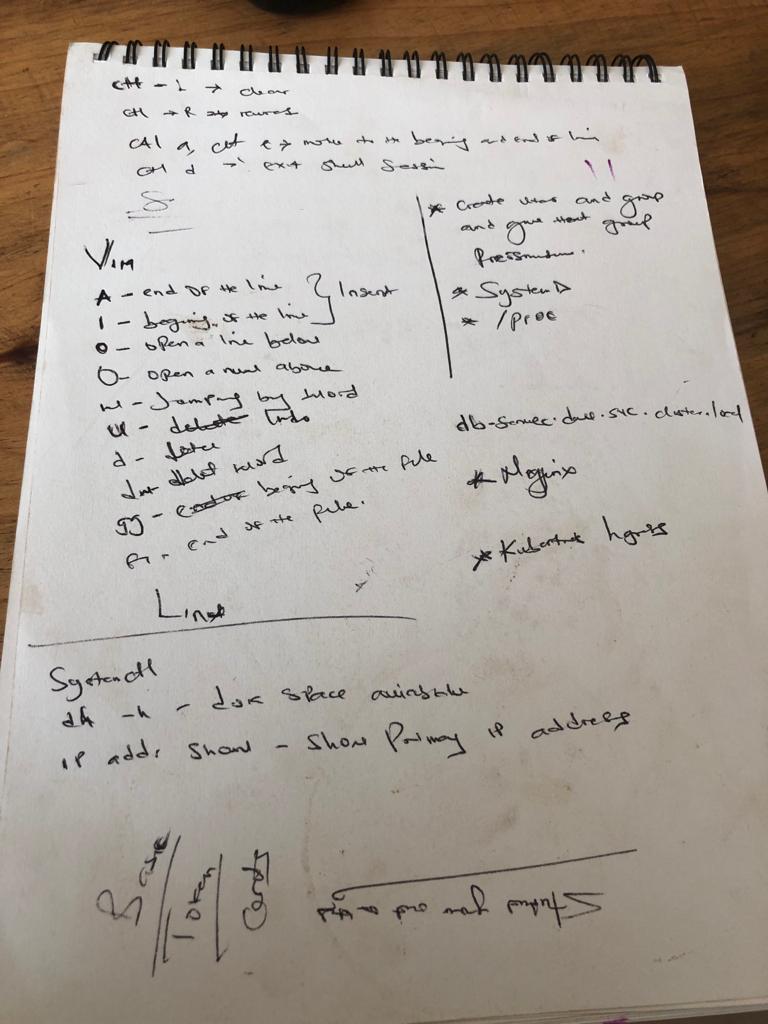 ctrl - L → clear
ctrl → R →
ctrl a, ctrl e → move to the begining and end of line
ctrl d → exit shell Session
Vim
A - end of the line } Insert
I - begining of the line
o - open a line below
O - open a new above
w - Jumping by word
u - Undo
d -
dw word
gg - begining of the file
G - end of the file.
* Create users and group
and give that group
* SystemD
* /proc
db-service.dev.svc.cluster.local
* Nginx
* Kubernetes Ingress
Linux
Systemctl
df -h - disk space available
ip addr show - show Primary ip address
Token
Cards